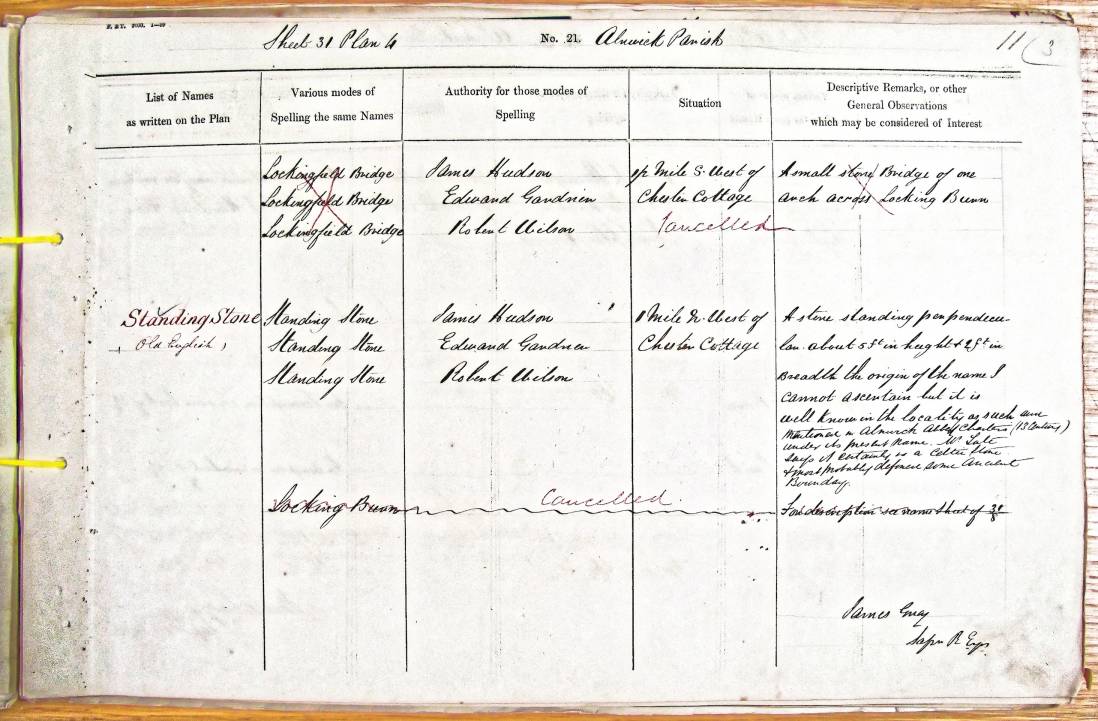 Sheet 31 Plan 4 No. 21. Alnwick Parish 11 3
List of Names
as written on the Plan
Various modes of
Spelling the same Names
Authority for those modes of
Spelling
Situation
Descriptive Remarks, or other
General Observations
which may be considered of Interest
Lockingfield Bridge James Hudson 1/2 Mile S. West of A small stone Bridge of one
Lockingfield Bridge Edward Gardner Chester Cottage arch across Locking Burn
Lockingfield Bridge Robert Wilson Cancelled
Standing Stone Standing Stone James Hudson " 1 Mile N. West of A stone standing perpendicu-
Old English Standing Stone Edward Gardner Chester Cottage lar about 5 ft in height & 2 ft in
Standing Stone Robert Wilson Breadth the origin of the name I
cannot ascertain but it is
well known in the locality as such
Mentioned in Alnwick Abbey Charters (13 Century)
under its present name. Mr. Tate
says it certainly is a Celtic Stone
& most probably defined some Ancient
Boundary.
Locking Burn Cancelled. For description see name sheet of 31/8
James Gray
Sapr R. Engrs.